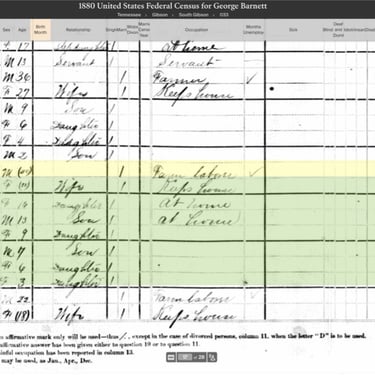 1880 United States Federal Census for George Barnett
Tennessee › Gibson › South Gibson › 033
Sex Age Birth Month Relationship Single Married Occupation Months Unemploy Sick
F 17 at home
M 13 Servant Servant
M 36 Farmer
F 27 Wife Keeps house
M 9 Son
F 6 Daughter
F 4 Daughter
M 2 Son
M Farm labor
F Wife Keeps house
F 14 Daughter At home
M 13 Son at home
F 9 Daughter
M 7 Son
F 6 Daughter
F 3 Daughter
M 22 Farm labor
F (18) Wife Keeps house
affirmative mark only will be used—thus /, except in the case of divorced persons, column 11, when the letter "D" is to be used.
affirmative answer has been given either to question 10 or to question 11.
inful occupation has been reported in column 13.
may be used, as Jan., Apr., Dec.
of 28